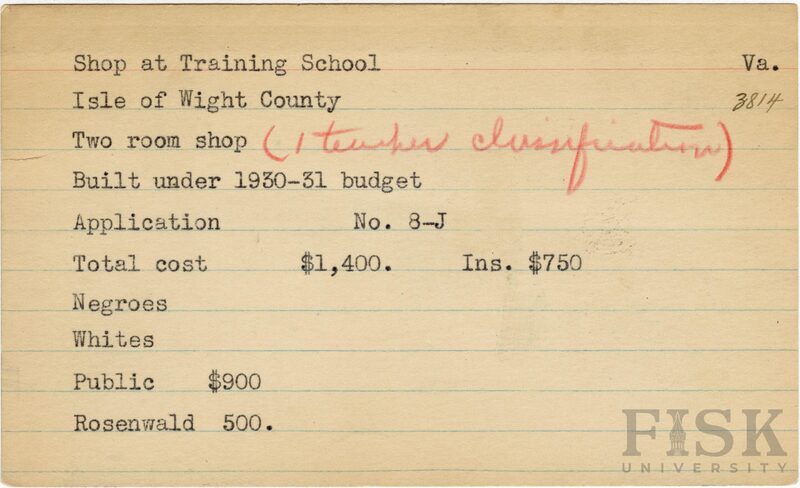 Shop at Training School Va.
Isle of Wight County 3814
Two room shop (1 teacher classification)
Built under 1930-31 budget
Application No. 8-J
Total cost $1,400. Ins. $750
Negroes
Whites
Public $900
Rosenwald 500.
FISK
UNIVERSITY